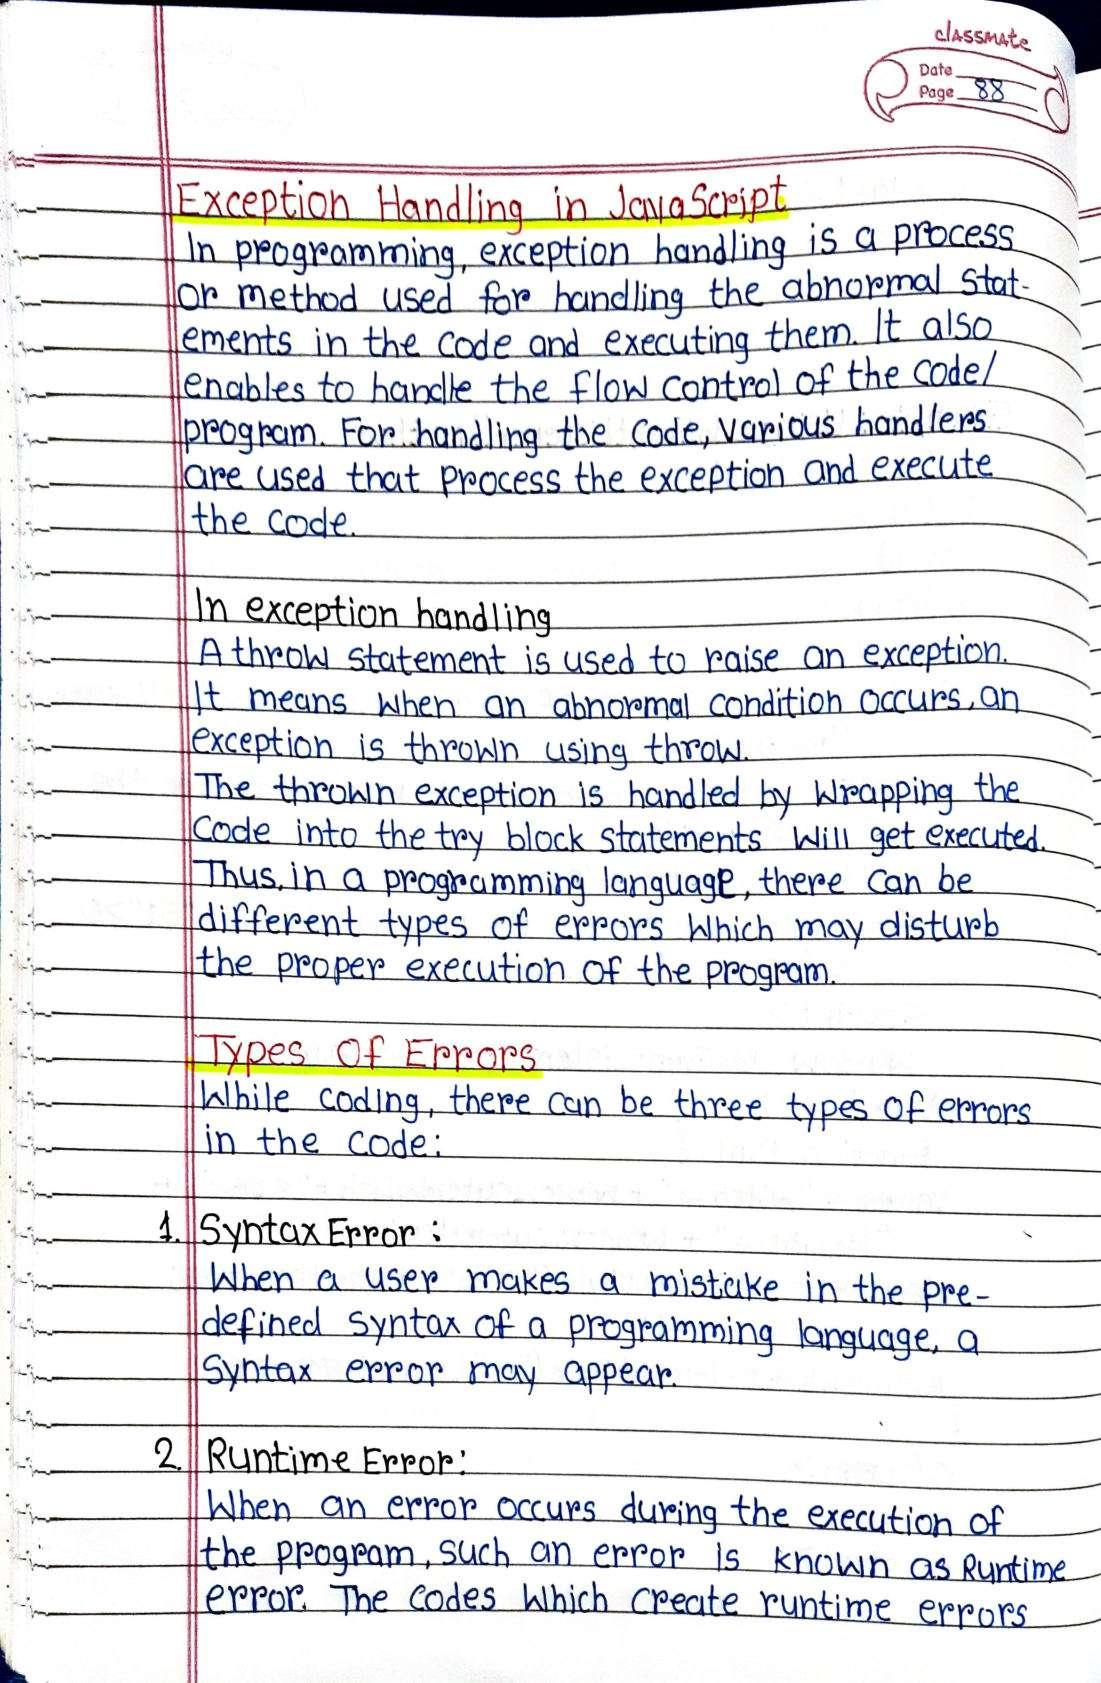 classmate
Date
Page 88
Exception Handling in JavaScript
In programming, exception handling is a process
or method used for handling the abnormal stat-
ements in the code and executing them. It also
enables to handle the flow control of the code/
program. For handling the code, various handlers
are used that process the exception and execute
the code.
In exception handling
A throw statement is used to raise an exception.
It means when an abnormal condition occurs, an
exception is thrown using throw.
The thrown exception is handled by wrapping the
code into the try block statements will get executed.
Thus, in a programming language, there can be
different types of errors which may disturb
the proper execution of the program.
Types of Errors
While coding, there can be three types of errors
in the code:
1. Syntax Error :
When a user makes a mistake in the pre-
defined syntax of a programming language, a
syntax error may appear.
2. Runtime Error:
When an error occurs during the execution of
the program, such an error is known as Runtime
error. The codes which create runtime errors